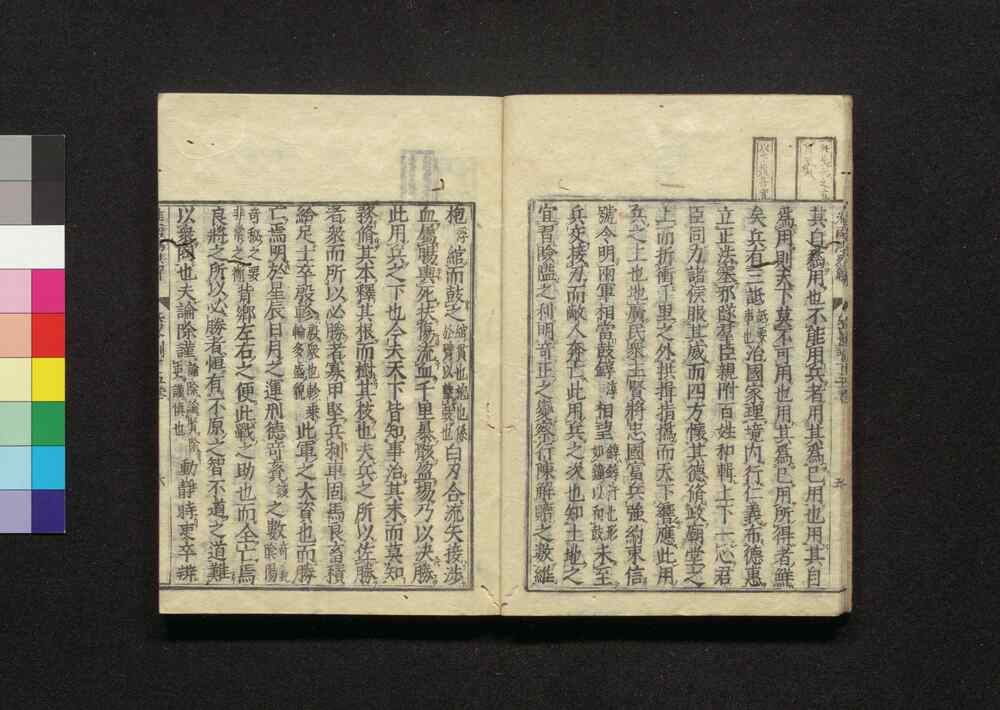 其自爲用也不能用兵者用其爲已用也用其自
爲用則天下莫不可用也用其爲已用所得者鮮
矣兵有三詆治國家理境内行仁義布德惠
立正法塞邪隧羣臣親附百姓和輯上下一心君
臣同力諸侯服其威而四方懷其德脩政廟堂之
上而折衝千里之外拱揖指撝而天下響應此用
兵之上也地廣民衆主賢將忠國富兵強約束信
號令明兩軍相當鼓錞相望未至
兵交接刃而敵人奔亡此用兵之次也知土地之
宜習險隘之利明奇正之變察行陳解贖之數維
枹綰而鼓之白刃合流矢接涉
血屬腸輿死扶傷流血千里暴骸盈場乃以決勝
此用兵之下也今夫天下皆知事治其末而莫知
務脩其本釋其根而樹其枝也夫兵之所以佐勝
者衆而所以必勝者寡甲堅兵利車固馬良畜積
給足士卒殷軫此軍之大資也而勝
亡焉明於星辰日月之運刑德奇賌之數
背鄉左右之便此戰之助也而全亡焉
良將之所以必勝者恒有不原之智不道之道難
以衆同也夫論除謹動靜時吏卒辨